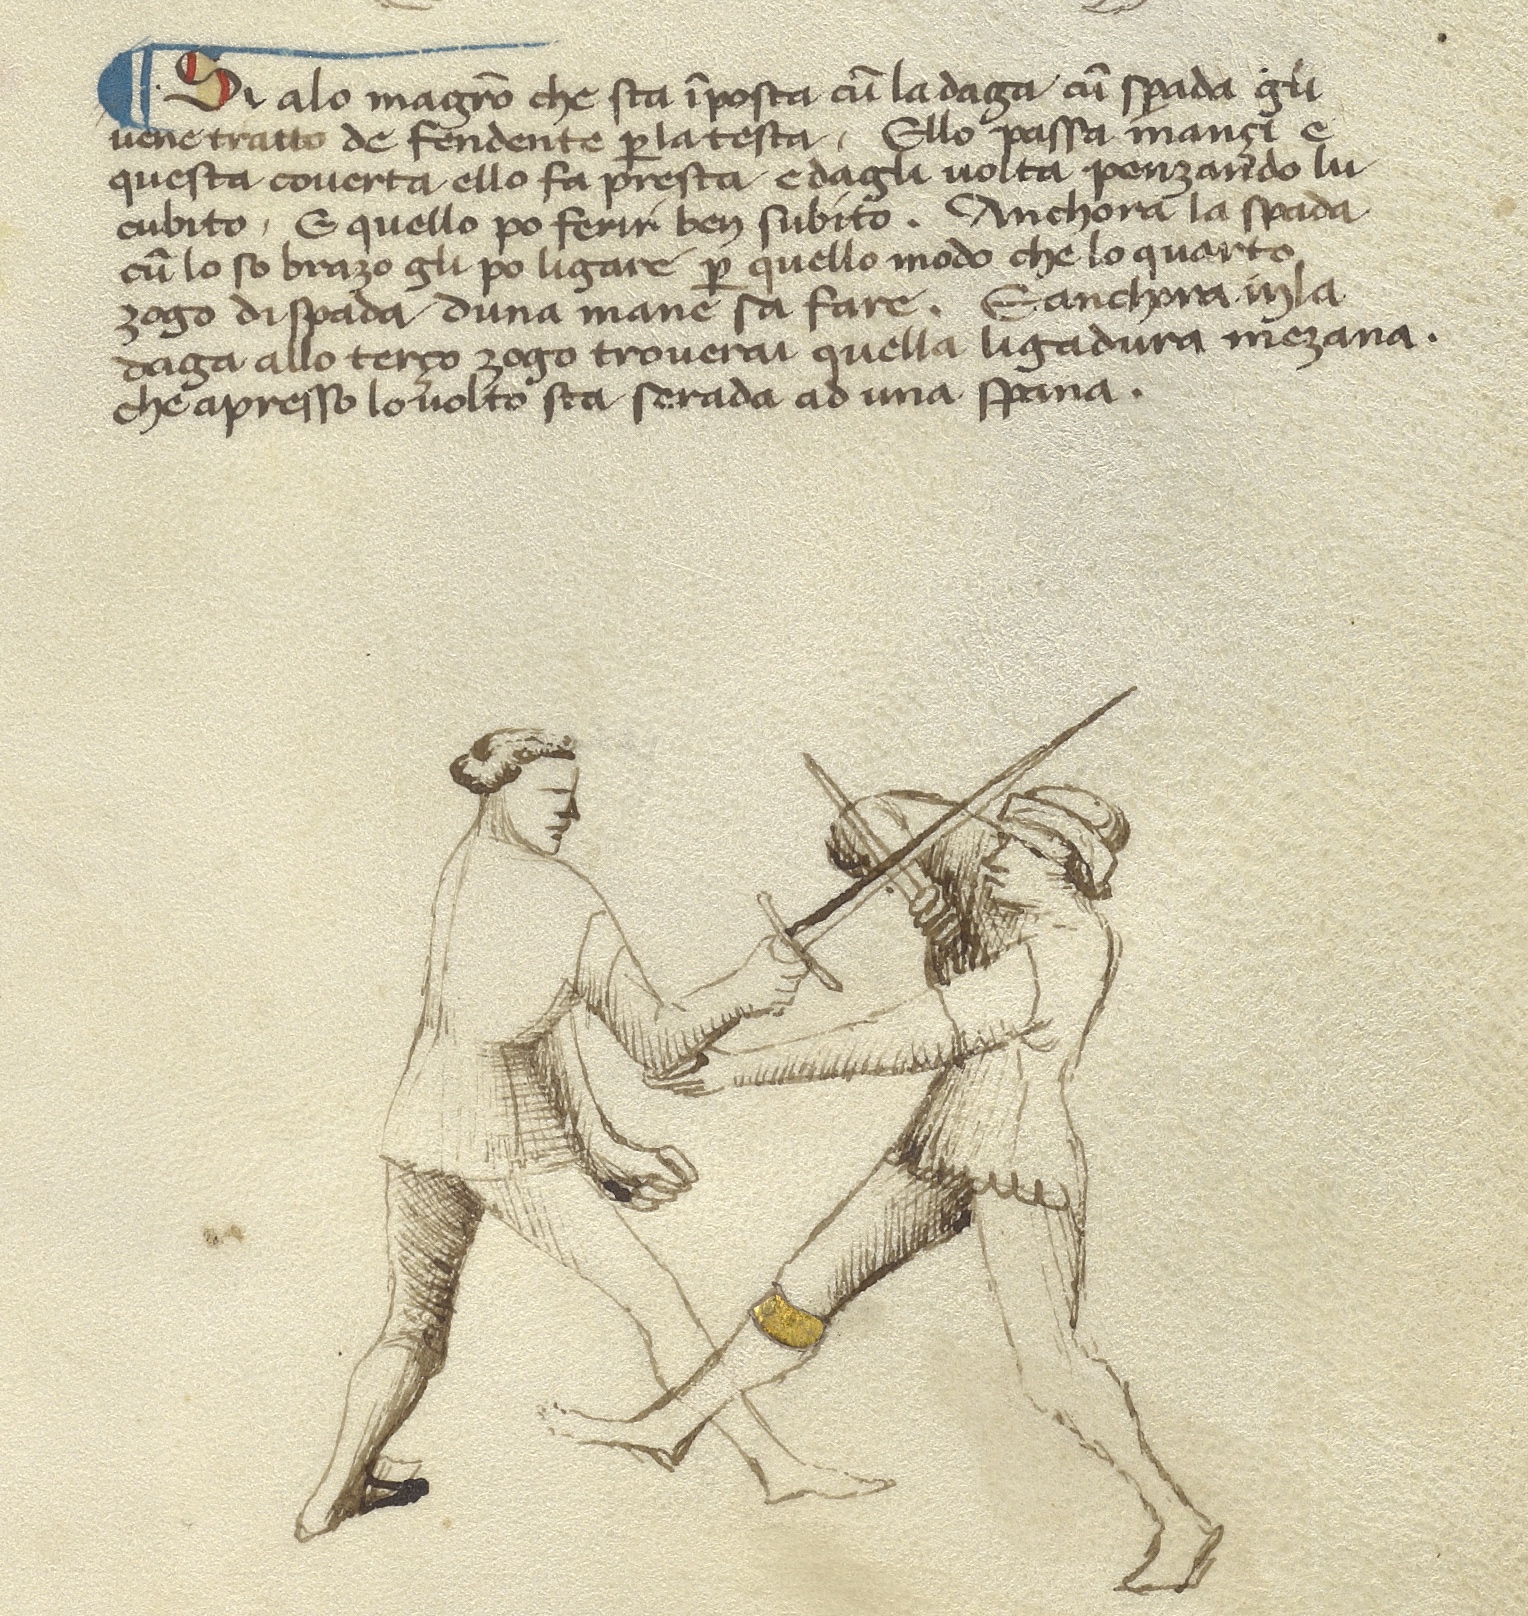 Si a lo magrõ che sta ĩposta cũ la daga cũ spada gli
vene tratto de fendente p̱ la testa, Ello passa inançi e
questa coverta ello fa presta e dagli volta penzando lu
cubito, E quello po ferir ben subito. Anchora la spada
cũ lo so brazo gli po ligare p̱ quello modo che lo quarto
zogo di spada duna mane sa fare. E anchora in la
daga allo terço zogo troverai quella ligadura mezana.
che apresso lo volto sta serada ad una spana.